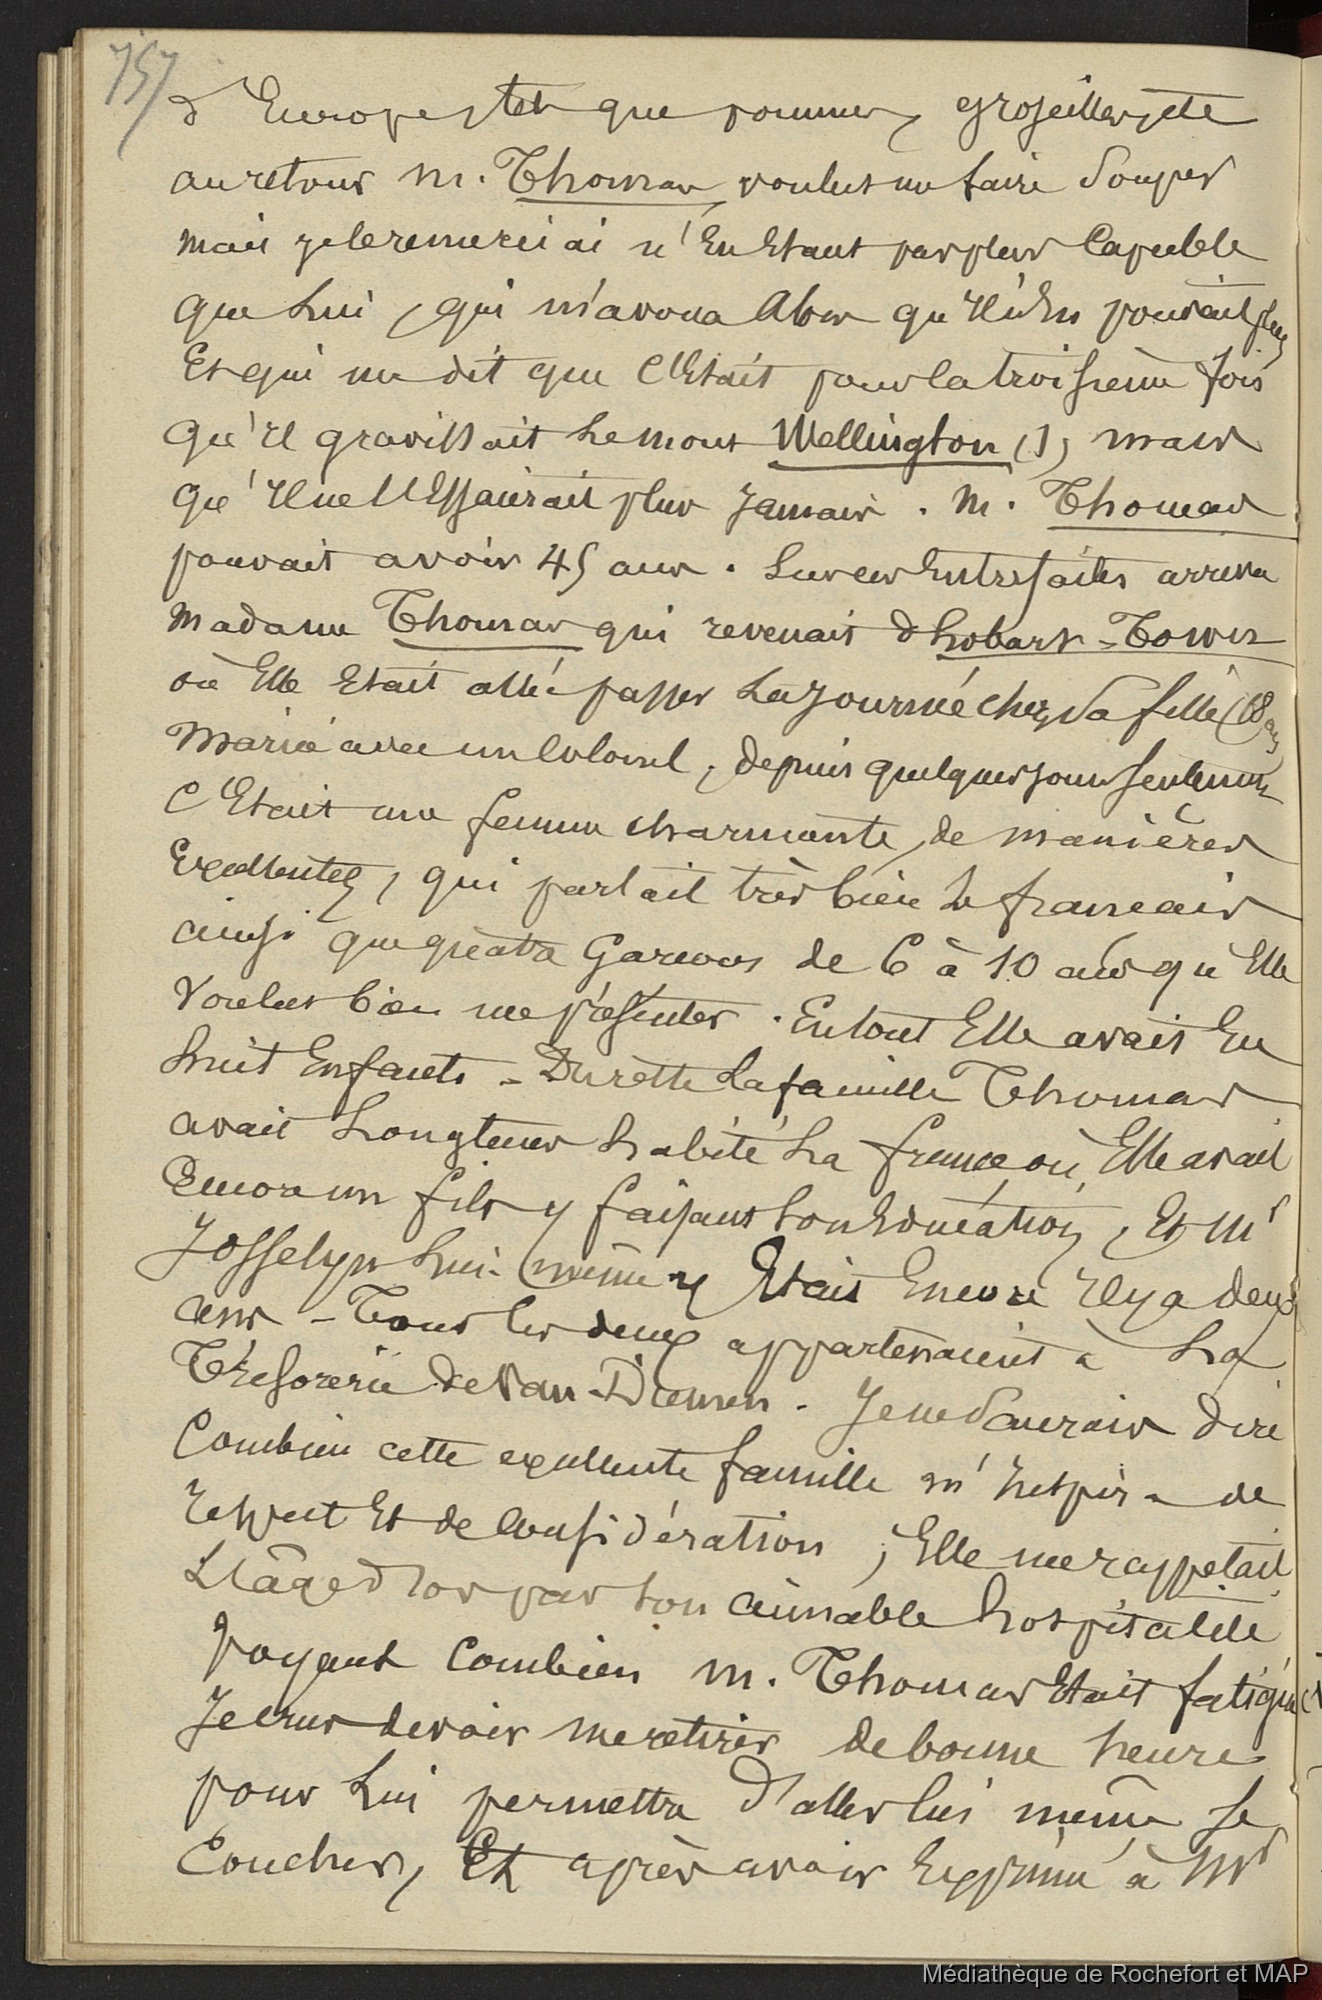 757
d'Europe, tels que pommes, groseilles, etc
au retour M. Thomas voulut me faire souper
mais je le remerciai n'en étant pas plus capable
que lui, qui m'avoua alors qu'il n'en pouvait plus
et qui me dit que c'était pour la troisième fois
qu'il gravissait le mont Wellington (1) mais
qu'il ne l'essaierait plus jamais. M. Thomas
pouvait avoir 45 ans. Sur ces entrefaites arriva
Madame Thomas qui revenait d'hobart-Town
où Elle était allée passer la journée chez sa fille (18 ans)
Mariée avec un Colonel, depuis quelques jours seulement
C'Etait une femme charmante, de manières
Excellentes, qui parlait très bien le français
ainsi que quatre Garçons de 6 à 10 ans qu'Elle
Voulut bien me présenter. En tout Elle avait Eu
huit Enfants - Du reste la famille Thomas
avait longtems habité la france où Elle avait
Encore un fils y faisant son Education, Et Mr
Josselyn lui-même y Etait Encore il y a deux
ans - Tous les deux appartenaient à la
Trésorerie de Van-Diemen. Je ne saurais dire
Combien cette excellente famille m'inspira de
respect Et de Considération, Elle me rappelait
L'âge d'or par son aimable hospitalité
Voyant Combien M. Thomas Etait fatigué
Je crus devoir me retirer de bonne heure
pour lui permettre d'aller lui même se
Coucher, Et après avoir Exprimé à Mr
Médiathèque de Rochefort et MAP